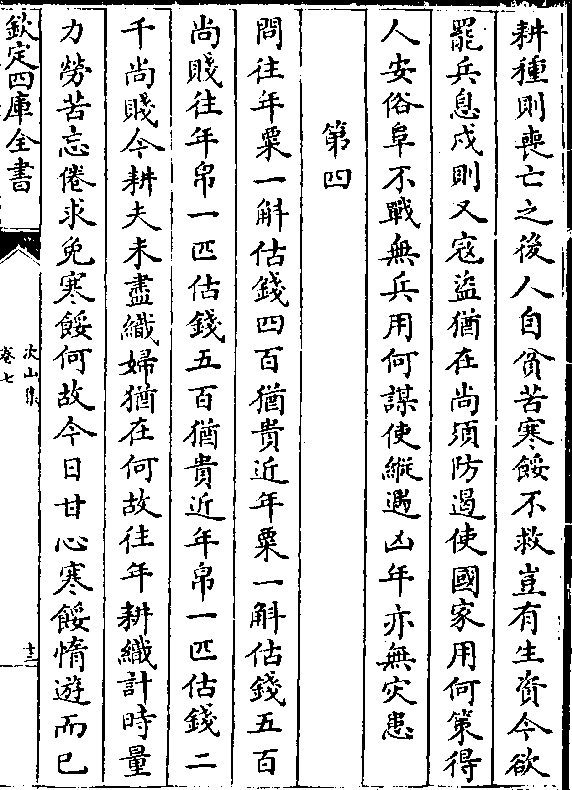 耕種則喪亡之後人自貧苦寒餒不救豈有生資今欲
罷兵息戍則又寇盜猶在尚須防遏使國家用何策得
人安俗阜不戰無兵用何謀使縱遇凶年亦無灾患
第四
問往年粟一斛估錢四百猶貴近年粟一斛估錢五百
尚賤往年帛一匹估錢五百猶貴近年帛一匹估錢二
千尚賤今耕夫未盡織婦猶在何故往年耕織計時量
力勞苦忘倦求免寒餒何故今日甘心寒餒惰遊而已
欽定四庫全書
次山集
卷七
十三